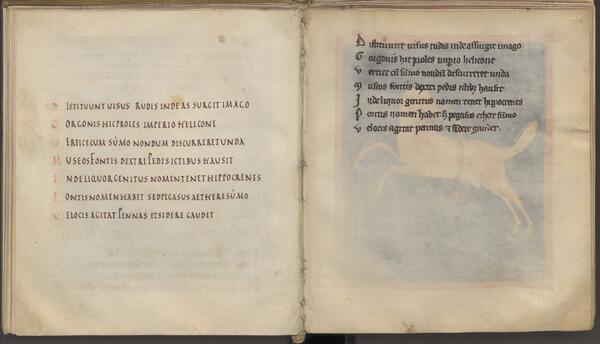 DISTITUUNT UISUS RUDIS INDE AS SURGIT IMAGO
GORGONIS HIC PROLES IMPERIO HELICONE
UERTICE CUM SŪMO NONDUM DISCURRERET UNDA
MUSEOS FONTIS DEXTRI PEDIS ICTIBUS HAUSIT
INDE LIQUOR GENITUS NOMEN TENET HIPPOCRENES
FONTIS NOMEN HABET SED PEGASUS AETHERE SŪMO
UELOCIS AGITAT PENNAS ET SIDERE GAUDET
Distituunt uisus rudis inde assurgit imago
Gorgonis hic proles imperio helicone
Vertice cū sūmo nondū discurreret unda
Museos fontis dextri pedis ictibus hausit
Inde liquor genitus nomen tenet hippocrenes
Pontis nomen habet sed pegasus ethere sūmo
Velocis agitat pennas & sidere gaudet.